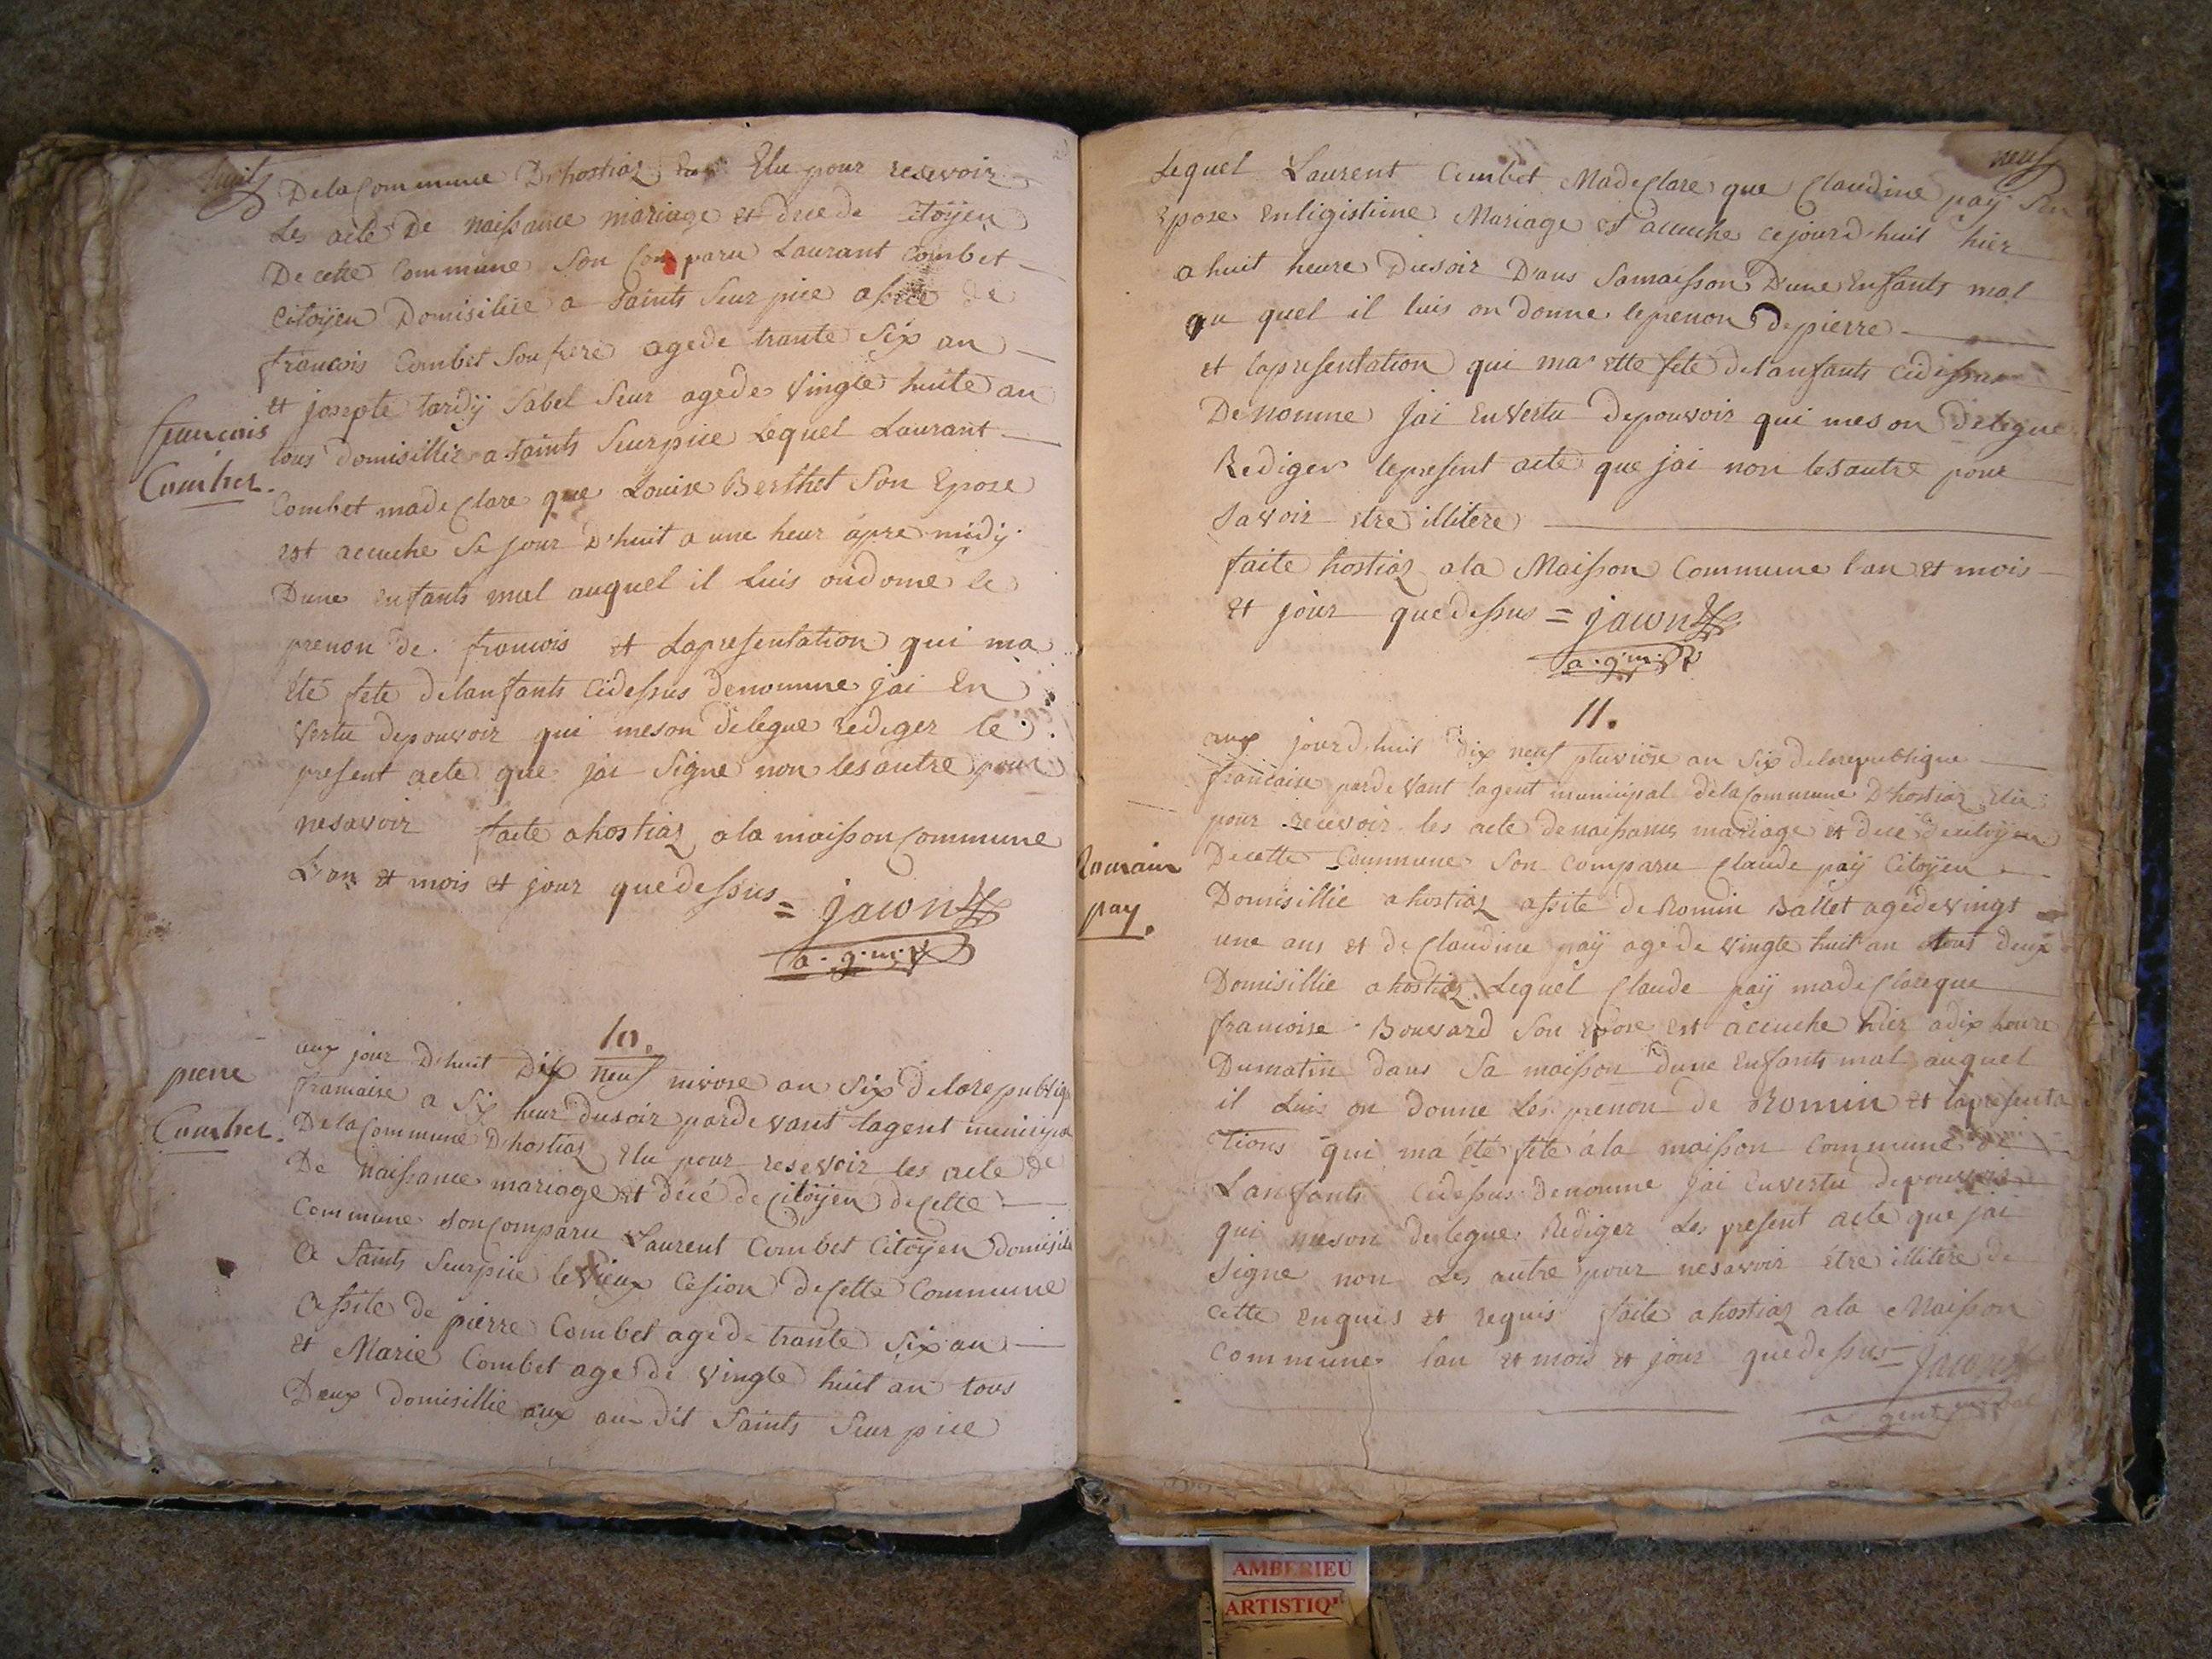 huit
De la Commune D'hostiaz Elu pour resevoir
Les acte De naissance mariage et decede Citoÿen
De cette Commune Son Comparu Laurant Combet
Citoÿen Domisiliée a Saints Seurpice assite de
francois Combet Son frere agede trante Six an
et josepte tardÿ Sabel Seur agede Vingte huite an
francois
tous domisillie a Saints Seurpice Lequel Laurant
Combet.
Combet madeclare que Louise Berthet Son Epose
est acuuche Se jour D'huit a une heur apre midÿ
Dune enfants mal auquel il Luis on done le
prenon de francois et Lapresentation qui ma
été fete delanfants Cidessus denomme jai En
Vertu depouvoir qui meson delegue rediger le
present acte que jai Signe non lesautre pour
nesavoir faite ahostiaz ala maisson Commune
L'an et mois et jour quedessus = jawnt
a.g.m.
10.
aux jour D'huit Dix neuf nivose an Six delarepubliq
pierre
francaise a Six heur dusoir pardevant lagent municipal
Combet.
Delacommune D'hostiaz Elu pour resevoir les acte De
De naissance mariage et décé de Citoÿen decette
Commune son comparu Laurent Combet Citoÿen domisilie
a Saints Seurpice levieux Cesion decette Commune
assite de pierre Combet agede trante Six an
et Marie Combet age de Vingte huit an tous
Deux domisillie aux au dit Saints Seurpice
neuf
Lequel Laurent Combet Madeclare que Claudine paÿ Son
Epose enligistime Mariage est acuuche cejourd'huit hier
a huit heure Dusoir Dans Samaisson D'une Enfants mal
au quel il luis on donne leprenon depierre
et lapresentation qui ma ette fete delanfants cidessus
Denomme Jai EnVertu depouvoir qui meson delegue
Rediger lepresent acte que jai non lesautre pour
Savoir etre illitere
faite hostiaz ala Maisson Commune l'an et mois
et jour quedessus = jawnt
a.g.m.
11.
aux jourd'huit dix neuf pluviose an Six delarepublique
francaise pardevant lagent municipal delacommune D'hostiaz elu
pour recevoir les acte denaissance mariage et décé decitoÿen
Romain
Decette Commune Son Comparu Claude paÿ Citoÿen
pay.
Domisillie ahostiaz assite de Romin Ballet agedevingt
une ans et de Claudine paÿ agede Vingte huit an tous deux
Domisillie ahostiaz Lequel Claude paÿ madeclareque
francoise Bouvard Son Epose est acuuche hier adix heure
Dumatin dans Sa maisson dune Enfants mal auquel
il Luis on donne Les prenon de Romin et lapresenta
tions qui ma été fete àla maisson Commune de
Lanfants Cidessus Denomme jai Envertu depouvoir
qui meson delegue Rediger Les present acte que jai
Signe non Les autre pour nesavoir étre illitere de
cette enquis et requis faite ahostiaz ala Maisson
Commune lan et mois et jour quedessus = jawnt
a gent
AMBERIEU
ARTISTIQ